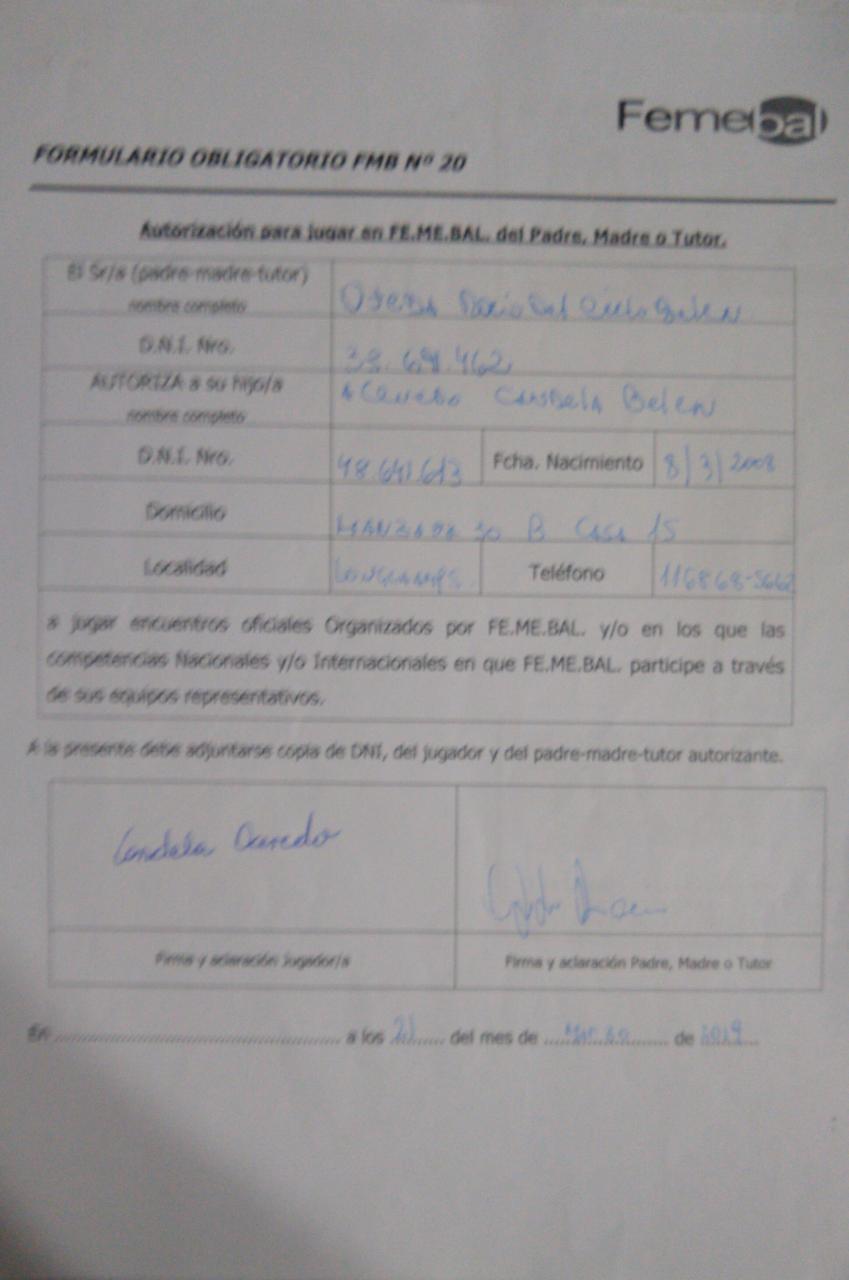 Femebal
FORMULARIO OBLIGATORIO FMB Nº 20
Autorización para jugar en FE.ME.BAL. del Padre, Madre o Tutor.
El Sr/a (padre-madre-tutor)
nombre completo
Belen
D.N.I. Nro.
AUTORIZA a su hijo/a
nombre completo
Acevedo Candela Belen
D.N.I. Nro.
48.641.613
Fcha. Nacimiento
8/3/2008
Domicilio
MANZANA 30 B CASA 15
Localidad
LONGCHAMPS
Teléfono
116868-5662
a jugar encuentros oficiales Organizados por FE.ME.BAL. y/o en los que las
competencias Nacionales y/o Internacionales en que FE.ME.BAL. participe a través
de sus equipos representativos.
A la presente debe adjuntarse copia de DNI, del jugador y del padre-madre-tutor autorizante.
Candela Acevedo
Firma y aclaración jugador/a
Firma y aclaración Padre, Madre o Tutor
En ........ a los 21 del mes de Marzo de 2019